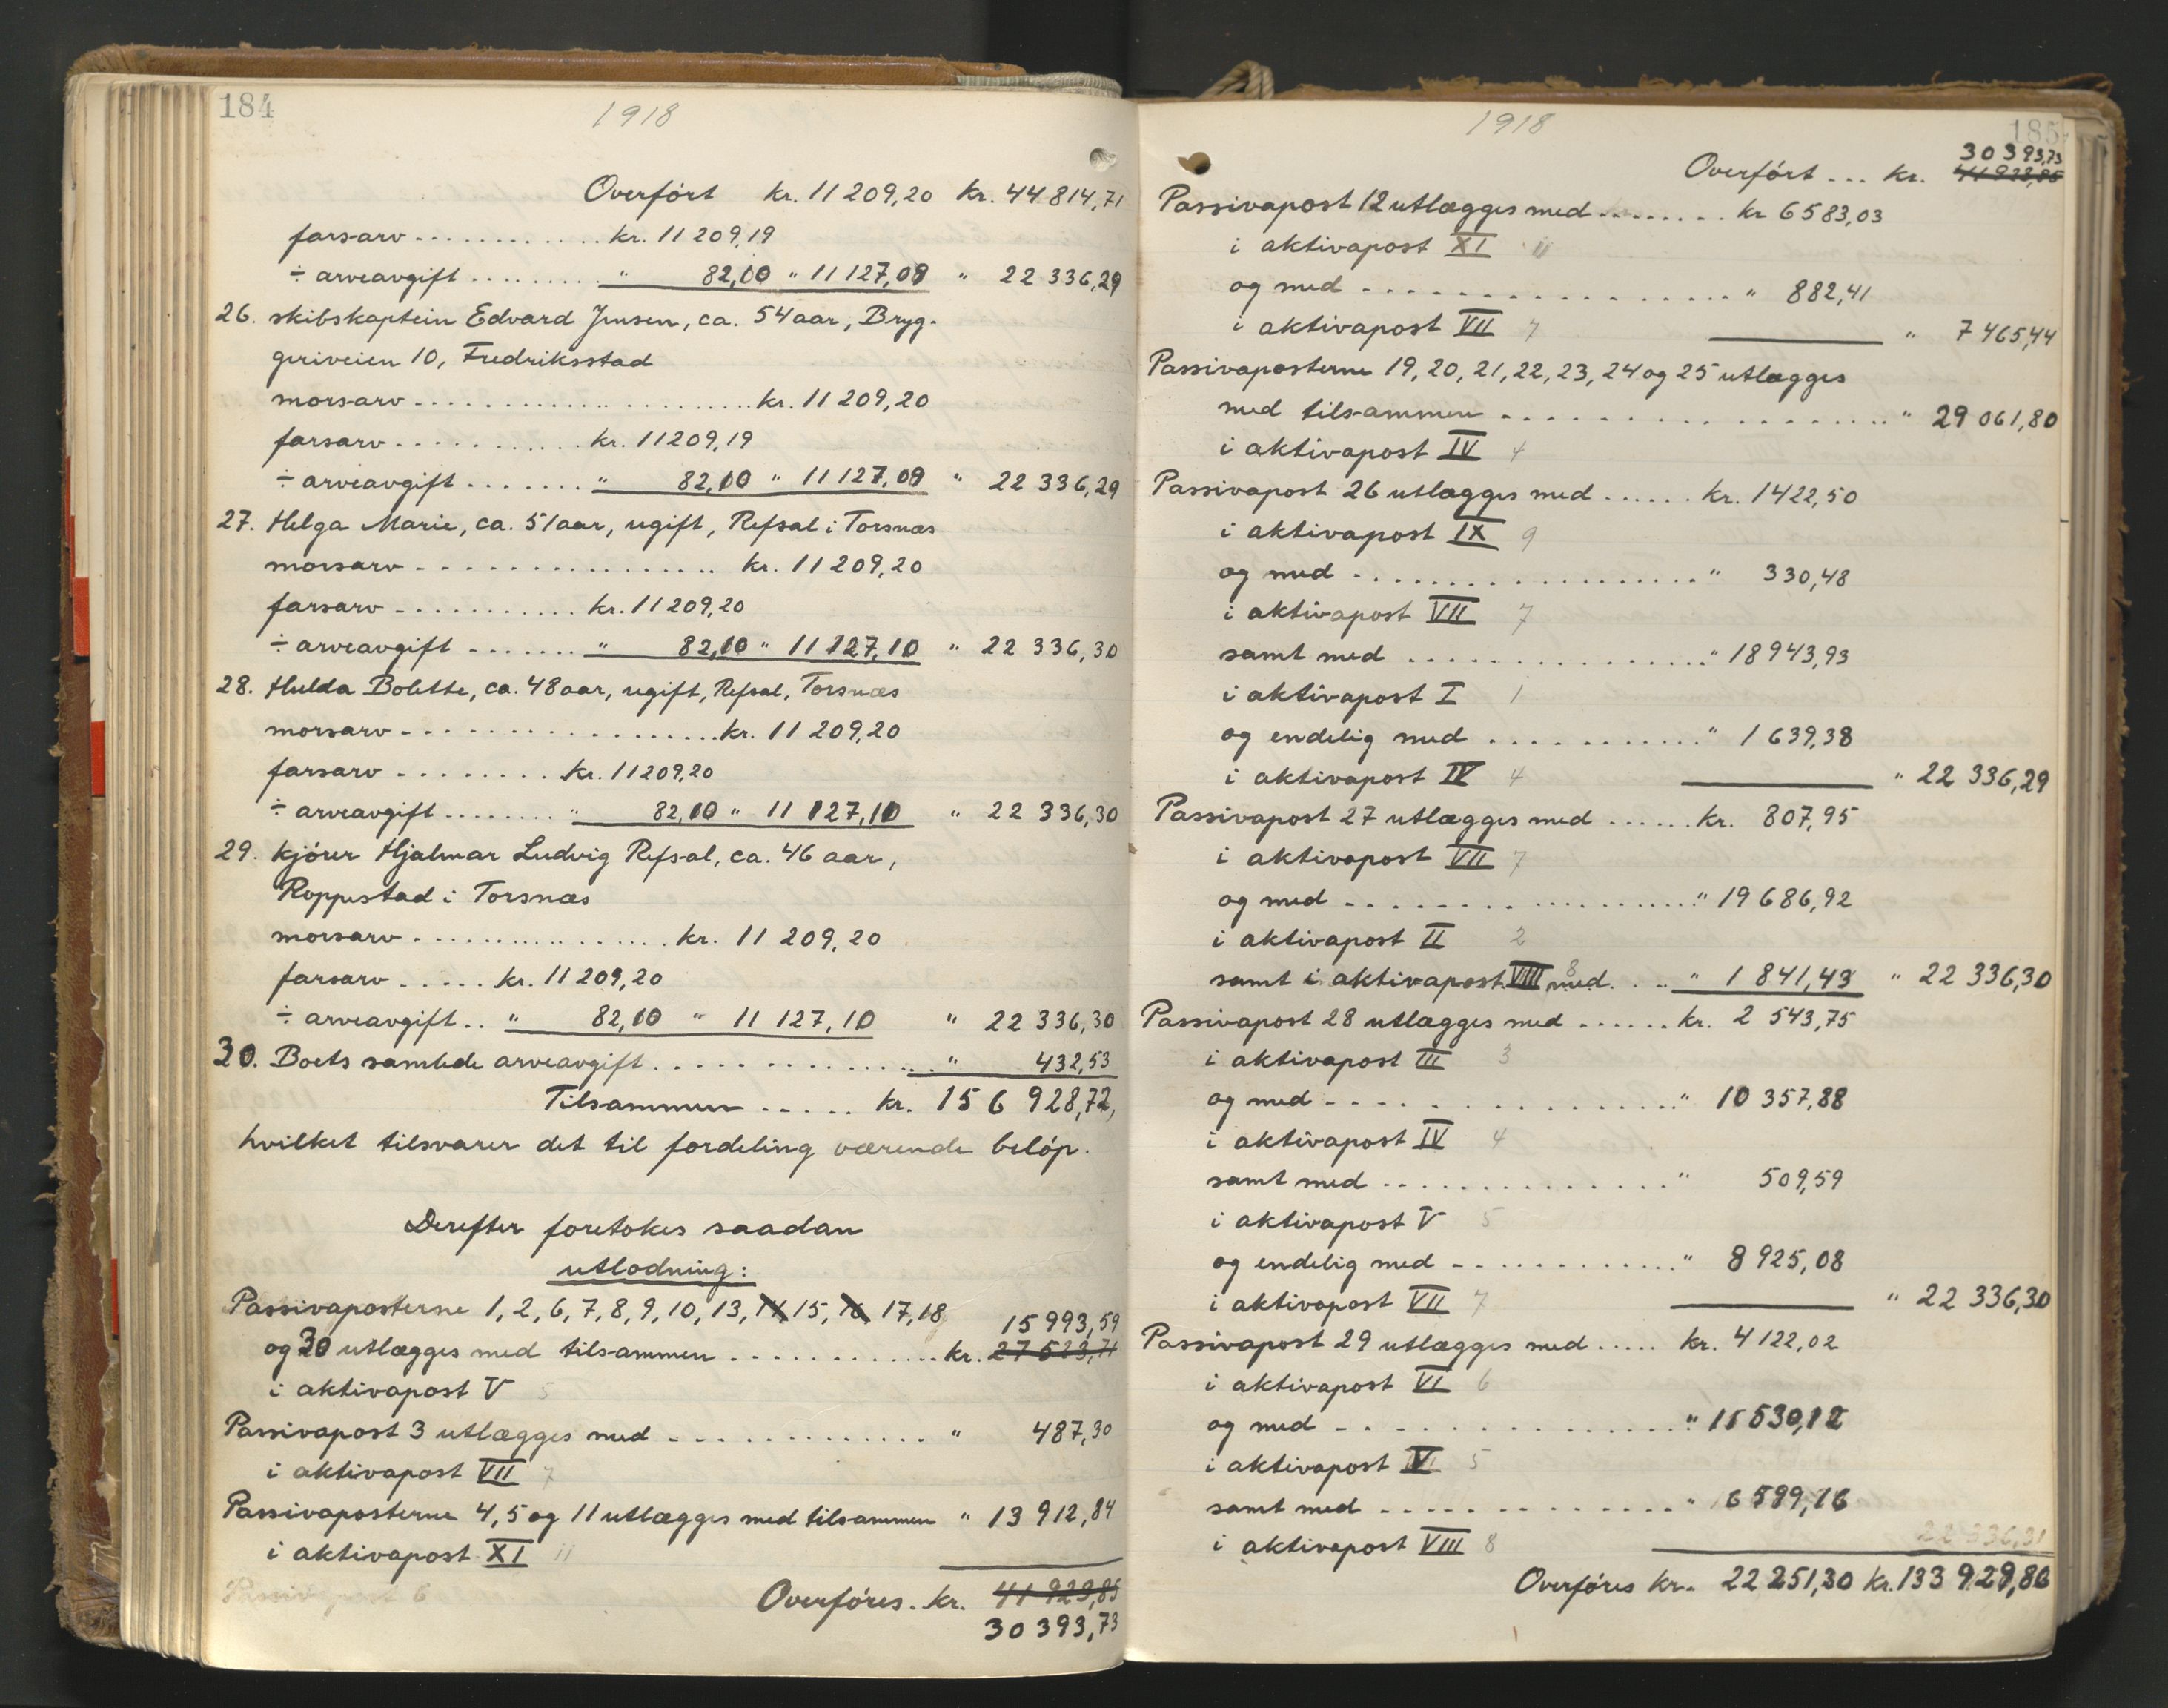 184
1918
Overfört kr. 11 209,20 kr. 44 814,71
farsarv ............. kr. 11 209,19
÷ arveavgift ......... " 82,10 " 11 127,09 " 22 336,29
26. skibskaptein Edvard Jensen, ca. 54 aar, Bryg-
geriveien 10, Fredriksstad
morsarv ........................ kr. 11 209,20
farsarv ............ kr. 11209,19
÷ arveavgift ....... " 82,10 " 11 127,09 " 22 336,29
27. Helga Marie, ca. 51 aar, ugift, Refsal i Torsnæs
morsarv .................... kr. 11 209,20
farsarv ............ kr. 11 209,20
÷ arveavgift ....... " 82,10 " 11 127,10 " 22 336,30
28. Hulda Bolette, ca. 48 aar, ugift, Refsal, Torsnæs
morsarv .................... kr. 11 209,20
farsarv ......... kr. 11209,20
÷ arveavgift ........ " 82,10 " 11 127,10 " 22 336,30
29. kjörer Hjalmar Ludvig Refsal, ca. 46 aar,
Roppestad i Torsnæs
morsarv ................. kr. 11 209,20
farsarv ..... kr. 11 209,20
÷ arveavgift .. " 82,10 " 11 127,10 " 22 336,30
30. Boets samlede arveavgift ................. " 432,53
Tilsammen ..... kr. 156 928,72,
hvilket tilsvarer det til fordeling værende belöp.
Derefter foretokes saadan
utlodning:
Passivaposterne 1, 2, 6, 7, 8, 9, 10, 13, 14 15, 16, 17, 18, 15 993,59
og 30 utlægges med tilsammen ............. kr. 27 523,71
i aktivapost V 5
Passivapost 3 utlægges med .............. " 487,30
i aktivapost VII 7
Passivaposterne 4, 5 og 11 utlægges med tilsammen " 13 912,84
i aktivapost XI 11
Passivapost 6
Overföres. kr. 41 923,85
30 393,73
1918
185
30 393,73
Overfört ... kr. 41 923,85
Passivapost 12 utlægges med ........ kr 6 583,03
i aktivapost XI 11
og med .................... " 882,41
i aktivapost VII 7 " 7 465,44
Passivaposterne 19, 20, 21, 22, 23, 24 og 25 utlægges
med tilsammen .................... " 29 061,80
i aktivapost IV 4
Passivapost 26 utlægges med ...... kr. 1422,50
i aktivapost IX 9
og med .................... " 330,48
i aktivapost VII 7
samt med .................. " 18 943,93
i aktivapost I 1
og endelig med ............ " 1 639,38
i aktivapost IV 4 " 22 336,29
Passivapost 27 utlægges med ...... kr. 807,95
i aktivapost VII 7
og med .................... " 19 686,92
i aktivapost II 2
samt i aktivapost VIII 8 med .... " 1 841,43 " 22 336,30
Passivapost 28 utlægges med ...... kr. 2 543,75
i aktivapost III 3
og med .................... " 10 357,88
i aktivapost IV 4
samt med ................ " 509,59
i aktivapost V 5
og endelig med ............. " 8 925,08
i aktivapost VII 7 " 22 336,30
Passivapost 29 utlægges med ..... kr. 4 122,02
i aktivapost VI 6
og med .................... " 11 530,12
i aktivapost V 5
samt med ................ " 6 599,16
22 336,31
i aktivapost VIII 8
Overföres kr. 22 251,30 kr. 133 929,86